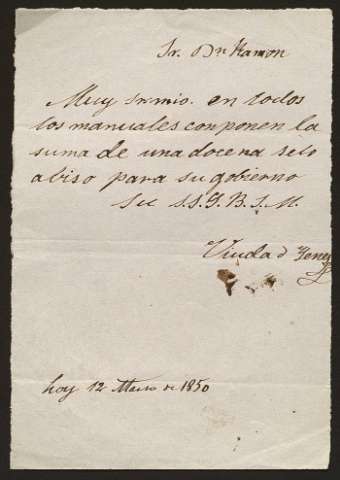 Sr. Dn Ramon
Muy sr. mio. en todos
los manuales conponen la
suma de una docena selo
abiso para su gobierno
Su S.S.Q.B.S.M.
Viuda d
hoy 12 Marzo de 1850